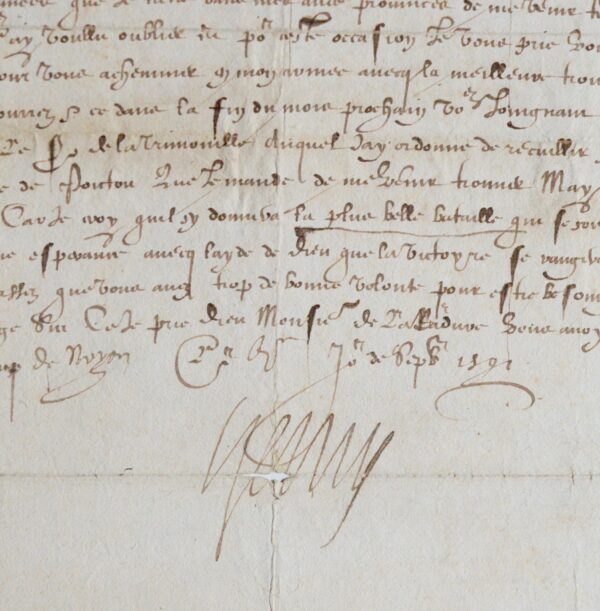 que de provinces de me venir
Jay voullu oublier po^r ceste occasion Je vous prie
pour vous acheminer en mon armee avecq la meilleure trou
pourrez & ce dans la fin du mois prochain vo^s Joignant
Le S^r de la Trimouille Auquel Jay ordonne de recuillir
de Poictou Que Je mande de me venir trouver Mays
Car Je croy quil sy donnera la plus belle bataille qui se soi
esperance avecq layde de dieu que la victoyre se rangera
assez que vous avez trop de bonne volonte pour estre beson
Sur Ce Je prie dieu Monsie^r de vous avoy
de Noyon Jo^r de Sept^bre 1591
Henry